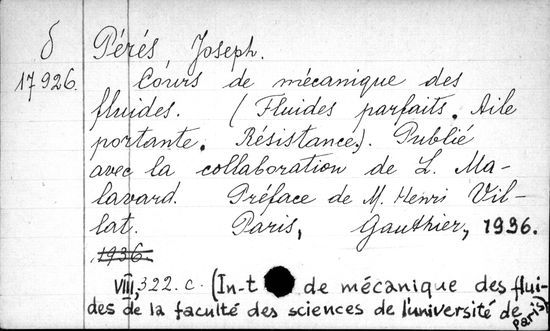 δ Pérés, Joseph.
17926. Cours de mécanique des
fluides. (Fluides parfaits. Aile
portante. Résistance). Publié
avec la collaboration de L. Ma-
lavard. Préface de M. Henri Vil-
lat. Paris, Gauthier, 1936.
1936.
VIII, 322. c. (In-t de mécanique des flui-
des de la faculté des sciences de l'université de Paris)